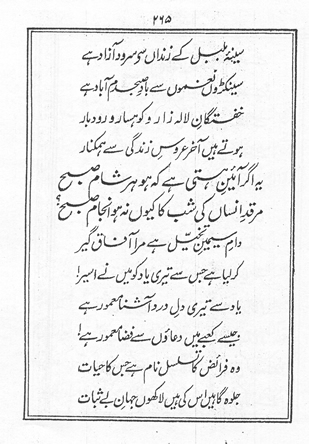 ۲۶۵
سینۂ بلبل کے زنداں سے سرود آزاد ہے
سینکڑوں نغموں سے بادِ صبحدم آباد ہے
خفتگانِ لالہ زار و کوہسار و رودبار
ہوتے ہیں آخر عروسِ زندگی سے ہمکنار
یہ اگر آئینِ ہستی ہے کہ ہو ہر شام صبح
مرقدِ انساں کی شب کا کیوں نہ ہو انجام صبح؟
دامِ سیمینِ تخیّل ہے مرا آفاق گیر
کر لیا ہے جس سے تیری یاد کو میں نے اسیر!
یاد سے تیری دلِ درد آشنا معمور ہے
جیسے کعبے میں دعاؤں سے فضا معمور ہے!
وہ فرائض کا تسلسل نام ہے جس کا حیات
جلوہ گاہیں اس کی ہیں لاکھوں جہانِ بے ثبات